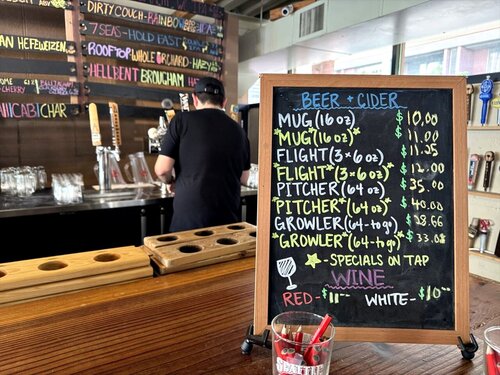 DIRTY COUCH-RAINBOW
7 SEAS-HOLD FAST
AN HEFEWEIZEN
ROOFTOP WHOLE ORCHARD-HAZY
HELLBENT BROUGHAM
CHERRY
BEER + CIDER
MUG (16 oz) $10.00
*MUG* (16 oz) $11.00
FLIGHT (3×6 oz) $11.25
*FLIGHT* (3×6 oz) $12.00
PITCHER (64 oz) $35.00
*PITCHER* (64 oz) $40.00
GROWLER (64-to go) $28.66
*GROWLER* (64-to go) $33.08
☆-SPECIALS ON TAP
WINE
RED-$11 WHITE-$10
SEATTLE